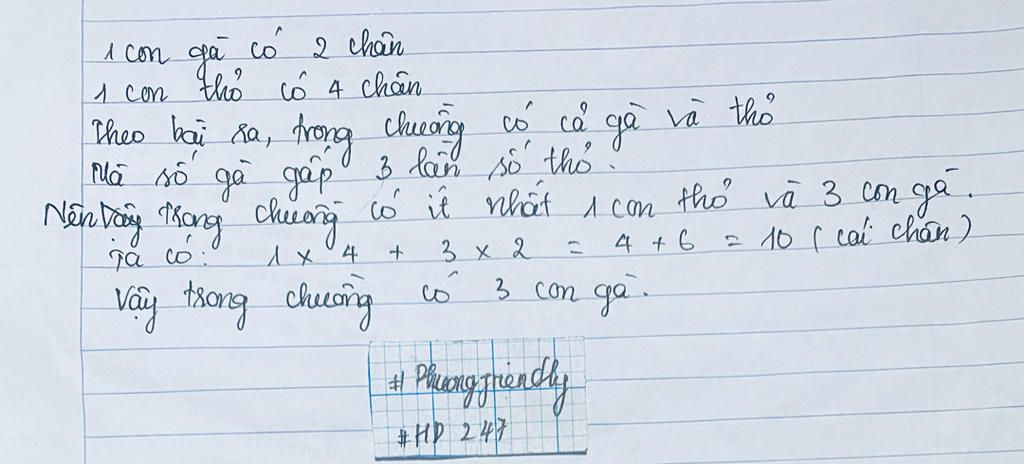 1 con gà có 2 chân
1 con thỏ có 4 chân
Theo bài ra, trong chuồng có cả gà và thỏ
Mà số gà gấp 3 lần số thỏ.
Nên trong chuồng có ít nhất 1 con thỏ và 3 con gà.
Ta có: 1 x 4 + 3 x 2 = 4 + 6 = 10 (cái chân)
Vậy trong chuồng có 3 con gà.
# Phuongfriendly
#HD 247